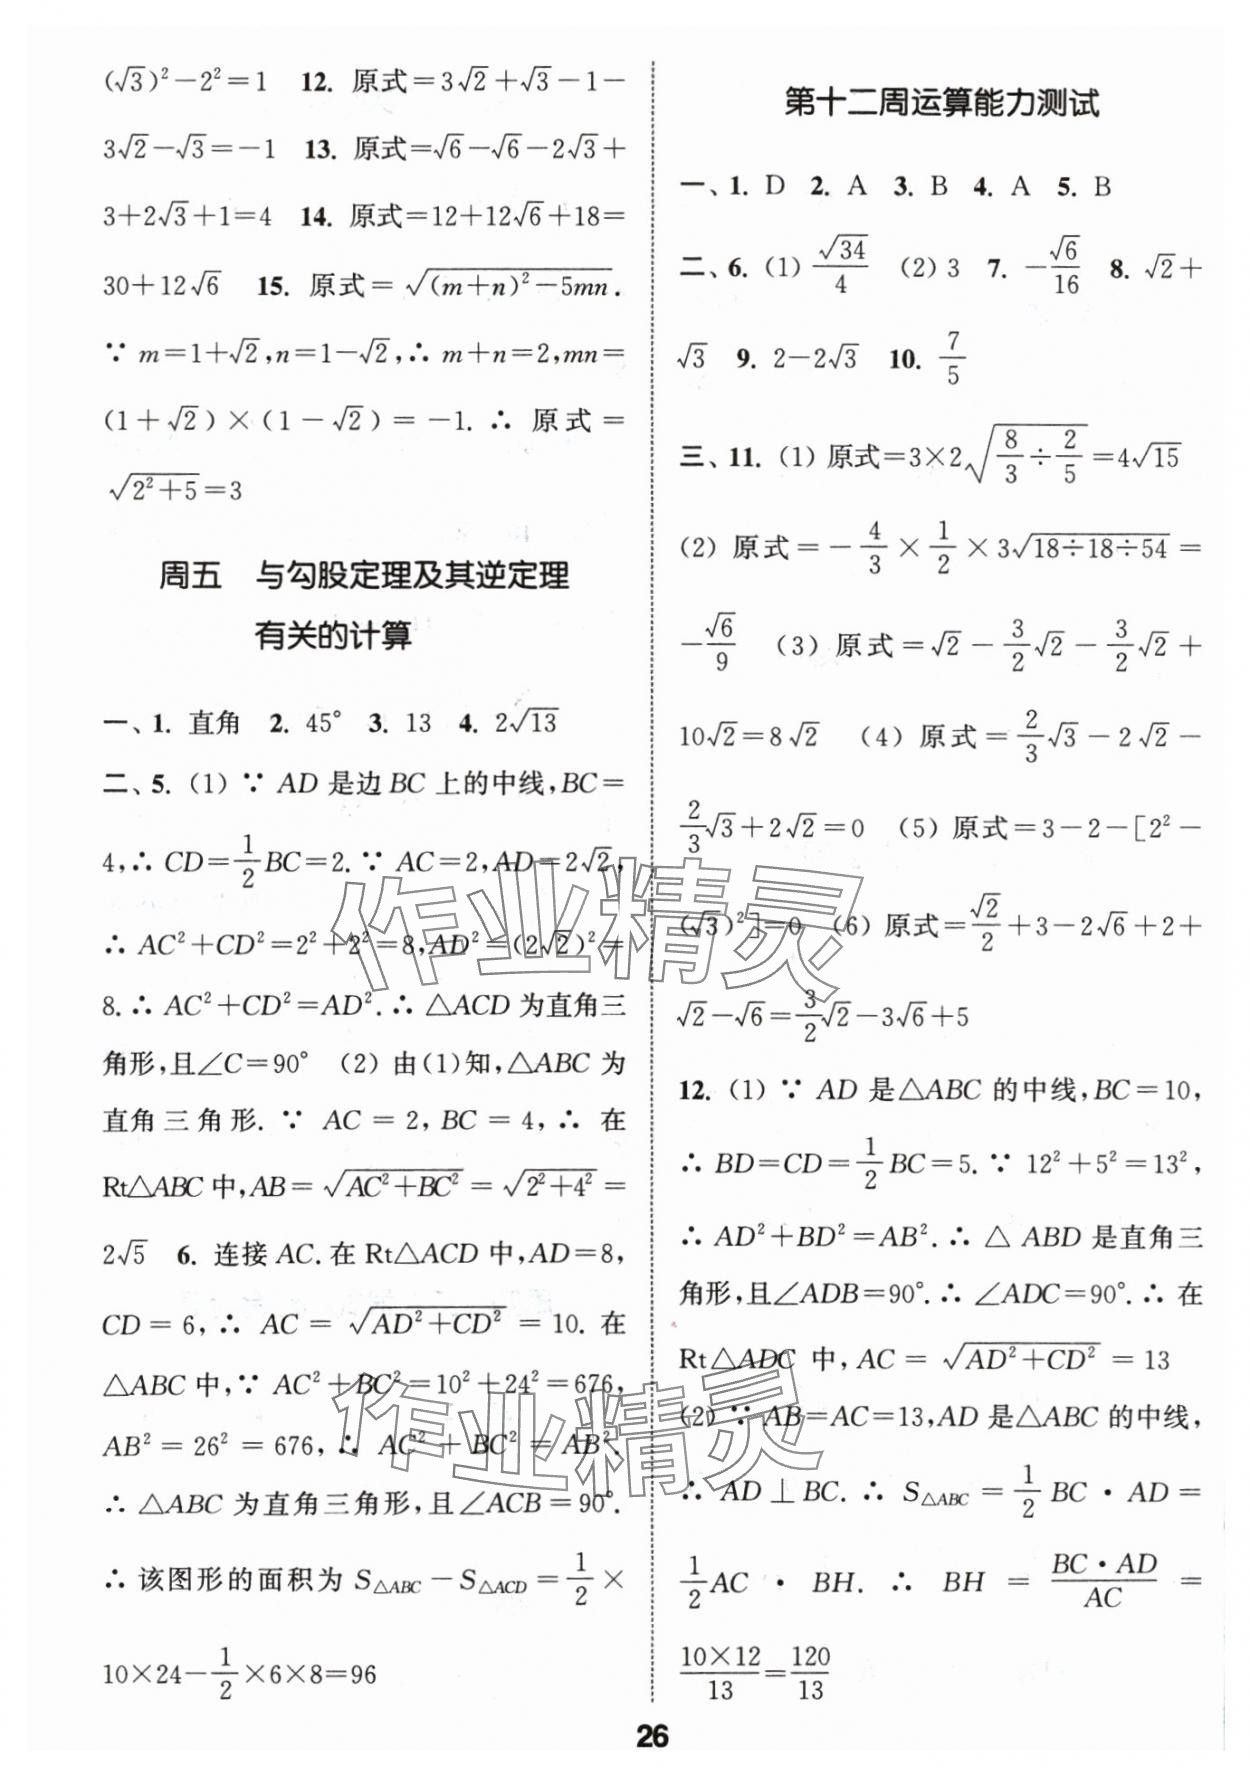 (√3)²－2²＝1　12. 原式＝3√2＋√3－1－
3√2－√3＝－1　13. 原式＝√6－√6－2√3＋
3＋2√3＋1＝4　14. 原式＝12＋12√6＋18＝
30＋12√6　15. 原式＝√((m＋n)²－5mn).
∵ m＝1＋√2,n＝1－√2,∴ m＋n＝2,mn＝
(1＋√2)×(1－√2)＝－1. ∴ 原式＝
√(2²＋5)＝3
周五　与勾股定理及其逆定理
有关的计算
一、1. 直角　2. 45°　3. 13　4. 2√13
二、5. (1) ∵ AD 是边 BC 上的中线,BC＝
4,∴ CD＝1/2 BC＝2. ∵ AC＝2,AD＝2√2,
∴ AC²＋CD²＝2²＋2²＝8,AD²＝(2√2)²＝
8. ∴ AC²＋CD²＝AD². ∴ △ACD 为直角三
角形,且∠C＝90°　(2) 由(1)知,△ABC 为
直角三角形. ∵ AC＝2,BC＝4,∴ 在
Rt△ABC 中,AB＝√(AC²＋BC²)＝√(2²＋4²)＝
2√5　6. 连接 AC. 在 Rt△ACD 中,AD＝8,
CD＝6,∴ AC＝√(AD²＋CD²)＝10. 在
△ABC 中,∵ AC²＋BC²＝10²＋24²＝676,
AB²＝26²＝676,∴ AC²＋BC²＝AB².
∴ △ABC 为直角三角形,且∠ACB＝90°.
∴ 该图形的面积为 S△ABC－S△ACD＝1/2×
10×24－1/2×6×8＝96
第十二周运算能力测试
一、1. D　2. A　3. B　4. A　5. B
二、6. (1) √34/4　(2) 3　7. －√6/16　8. √2＋
√3　9. 2－2√3　10. 7/5
三、11. (1) 原式＝3×2√(8/3÷2/5)＝4√15
(2) 原式＝－4/3×1/2×3√(18÷18÷54)＝
－√6/9　(3) 原式＝√2－3/2√2－3/2√2＋
10√2＝8√2　(4) 原式＝2/3√3－2√2－
2/3√3＋2√2＝0　(5) 原式＝3－2－[2²－
(√3)²]＝0　(6) 原式＝√2/2＋3－2√6＋2＋
√2－√6＝3/2√2－3√6＋5
12. (1) ∵ AD 是△ABC 的中线,BC＝10,
∴ BD＝CD＝1/2 BC＝5. ∵ 12²＋5²＝13²,
∴ AD²＋BD²＝AB². ∴ △ABD 是直角三
角形,且∠ADB＝90°. ∴ ∠ADC＝90°. ∴ 在
Rt△ADC 中,AC＝√(AD²＋CD²)＝13
(2) ∵ AB＝AC＝13,AD 是△ABC 的中线,
∴ AD⊥BC. ∴ S△ABC＝1/2 BC·AD＝
1/2 AC·BH. ∴ BH＝BC·AD/AC＝
10×12/13＝120/13
26
作业精灵
作业精灵